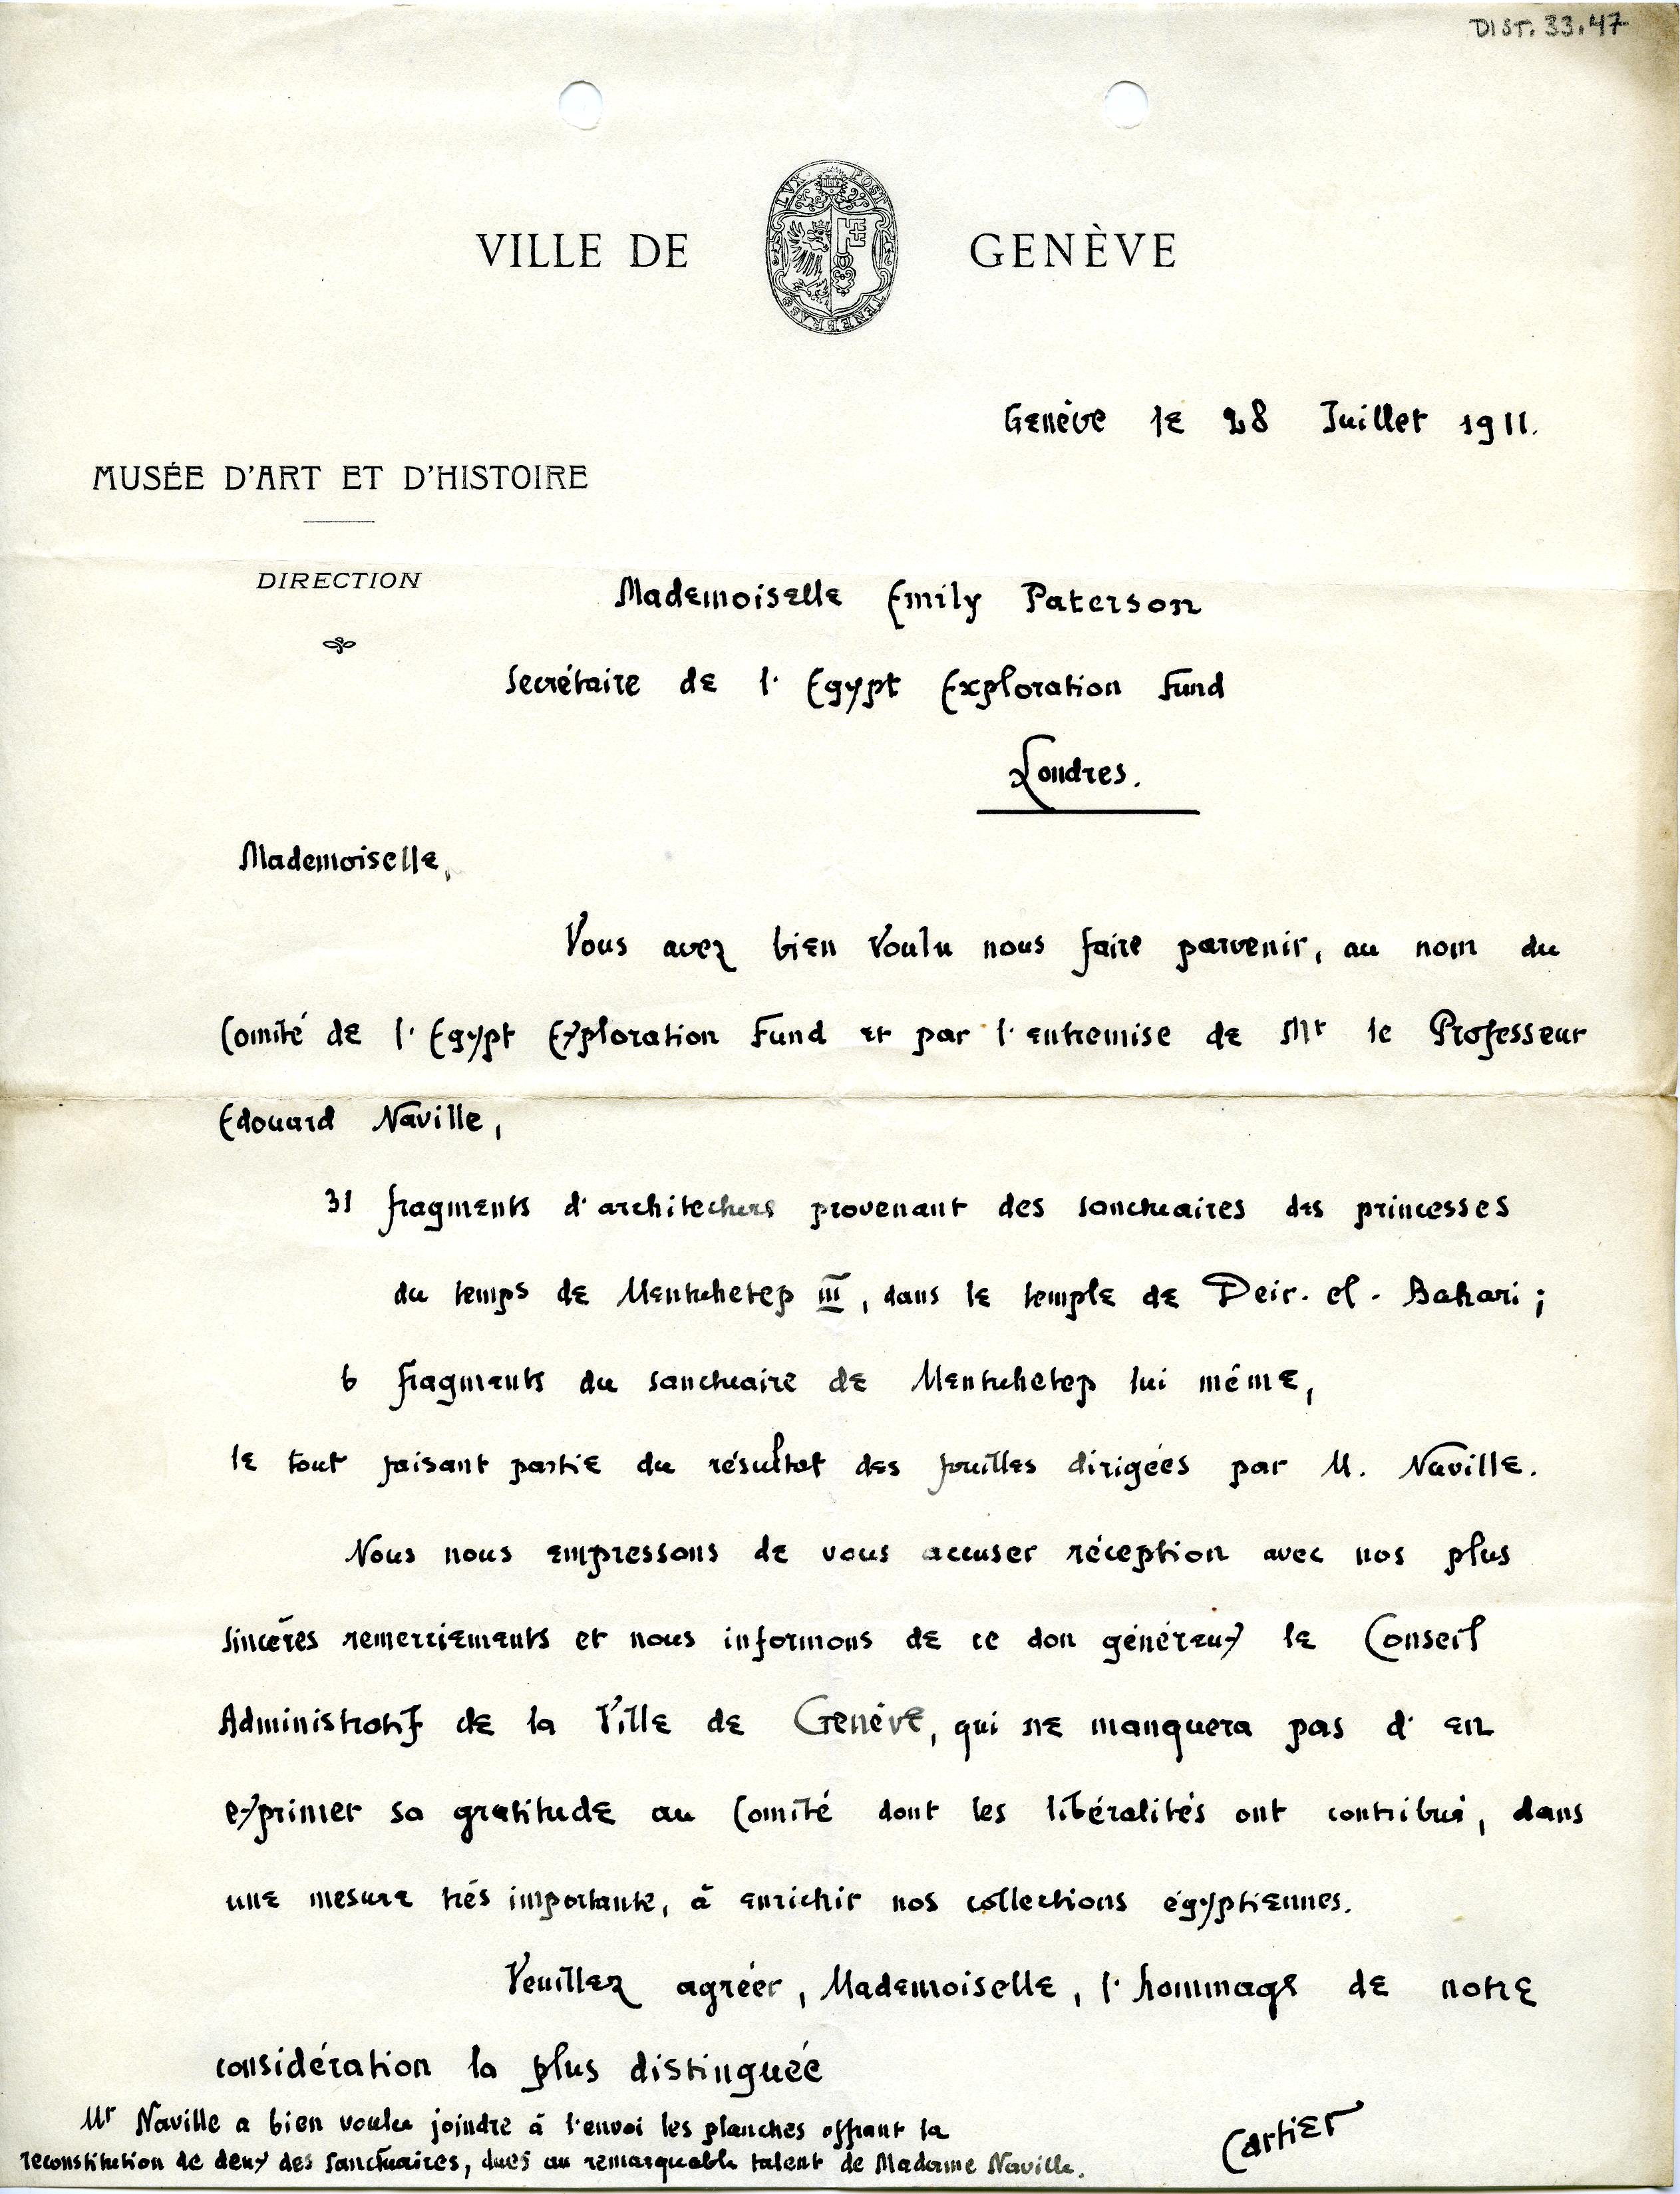 DIST. 33.47
VILLE DE GENÈVE
POST TENEBRAS LVX
Genève le 28 Juillet 1911.
MUSÉE D'ART ET D'HISTOIRE
DIRECTION
Mademoiselle Emily Paterson
Secrétaire de l'Egypt Exploration Fund
Londres.
Mademoiselle,
Vous avez bien voulu nous faire parvenir, au nom du
Comité de l'Egypt Exploration Fund et par l'entremise de Mr le Professeur
Edouard Naville,
31 fragments d'architecture provenant des sanctuaires des princesses
du temps de Mentuhetep III, dans le temple de Deir-el-Bahari;
6 fragments du sanctuaire de Mentuhetep lui même,
le tout faisant partie du résultat des fouilles dirigées par M. Naville.
Nous nous empressons de vous accuser réception avec nos plus
sincères remerciements et nous informons de ce don généreux le Conseil
Administratif de la Ville de Genève, qui ne manquera pas d'en
exprimer sa gratitude au Comité dont les libéralités ont contribué, dans
une mesure très importante, à enrichir nos collections égyptiennes.
Veuillez agréer, Mademoiselle, l'hommage de notre
considération la plus distinguée
Cartier
Mr Naville a bien voulu joindre à l'envoi les planches offrant la
reconstitution de deux des sanctuaires, dues au remarquable talent de Madame Naville.